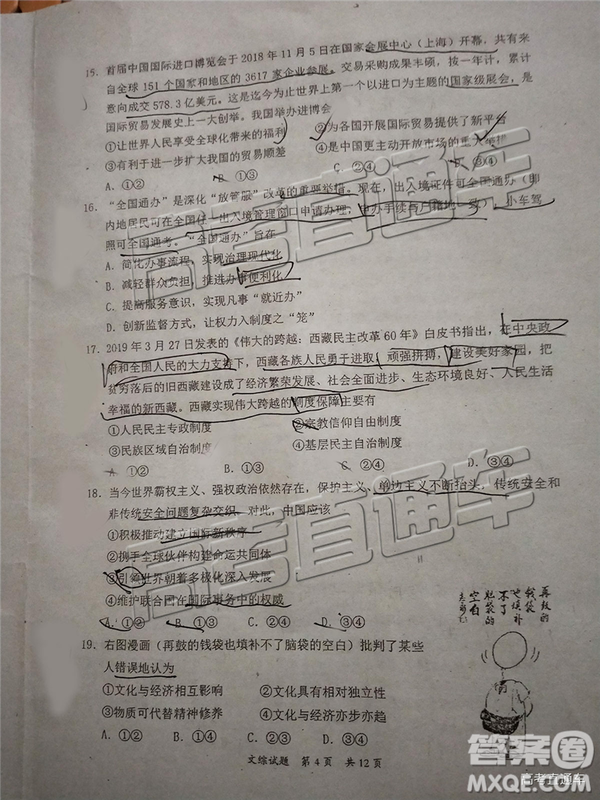 15. 首届中国国际进口博览会于 2018 年 11 月 5 日在国家会展中心（上海）开幕，共有来
自全球 151 个国家和地区的 3617 家企业参展，交易采购成果丰硕，按一年计，累计
意向成交 578.3 亿美元。这是迄今为止世界上第一个以进口为主题的国家级展会，是
国际贸易发展史上一大创举。我国举办进博会
①让世界人民享受全球化带来的福利 ②为各国开展国际贸易提供了新平台
③有利于进一步扩大我国的贸易顺差 ④是中国更主动开放市场的重大举措
A. ①③ B. ①④ C. ②③ D. ②④
16. “全国通办”是深化“放管服”改革的重要举措。现在，出入境证件可全国通办（即
内地居民可在全国任一出入境管理窗口申请办理，申办手续与户籍地一致），小车驾
照可全国通考。“全国通办”旨在
A. 简化办事流程，实现治理现代化
B. 减轻群众负担，推进办事便利化
C. 提高服务意识，实现凡事“就近办”
D. 创新监督方式，让权力入制度之“笼”
17. 2019 年 3 月 27 日发表的《伟大的跨越：西藏民主改革 60 年》白皮书指出，在中央政
府和全国人民的大力支持下，西藏各族人民勇于进取、顽强拼搏，建设美好家园，把
贫穷落后的旧西藏建设成了经济繁荣发展、社会全面进步、生态环境良好、人民生活
幸福的新西藏。西藏实现伟大跨越的制度保障主要有
①人民民主专政制度 ②宗教信仰自由制度
③民族区域自治制度 ④基层民主自治制度
A. ①② B. ①③ C. ②④ D. ③④
18. 当今世界霸权主义、强权政治依然存在，保护主义、单边主义不断抬头，传统安全和
非传统安全问题复杂交织。对此，中国应该
①积极推动建立国际新秩序
②携手全球伙伴构建命运共同体
③引领世界朝着多极化深入发展
④维护联合国在国际事务中的权威
A. ①③ B. ①④ C. ②③ D. ②④
19. 右图漫画（再鼓的钱袋也填补不了脑袋的空白）批判了某些
人错误地认为
①文化与经济相互影响 ②文化具有相对独立性
③物质可代替精神修养 ④文化与经济亦步亦趋
A. ①② B. ①③ C. ②④ D. ③④
再鼓的
钱袋也
填补
不了
脑袋的
空白
文综试题 第 4 页 共 12 页
高考直通车
高考直通车
答案圈
MXQE.COM
高考直通车